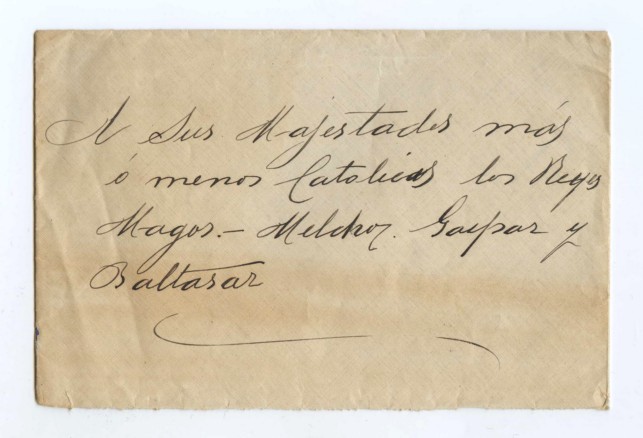 A Sus Majestades más
ó menos Catolicas los Reyes
Magos.- Melchor. Gaspar y
Baltasar